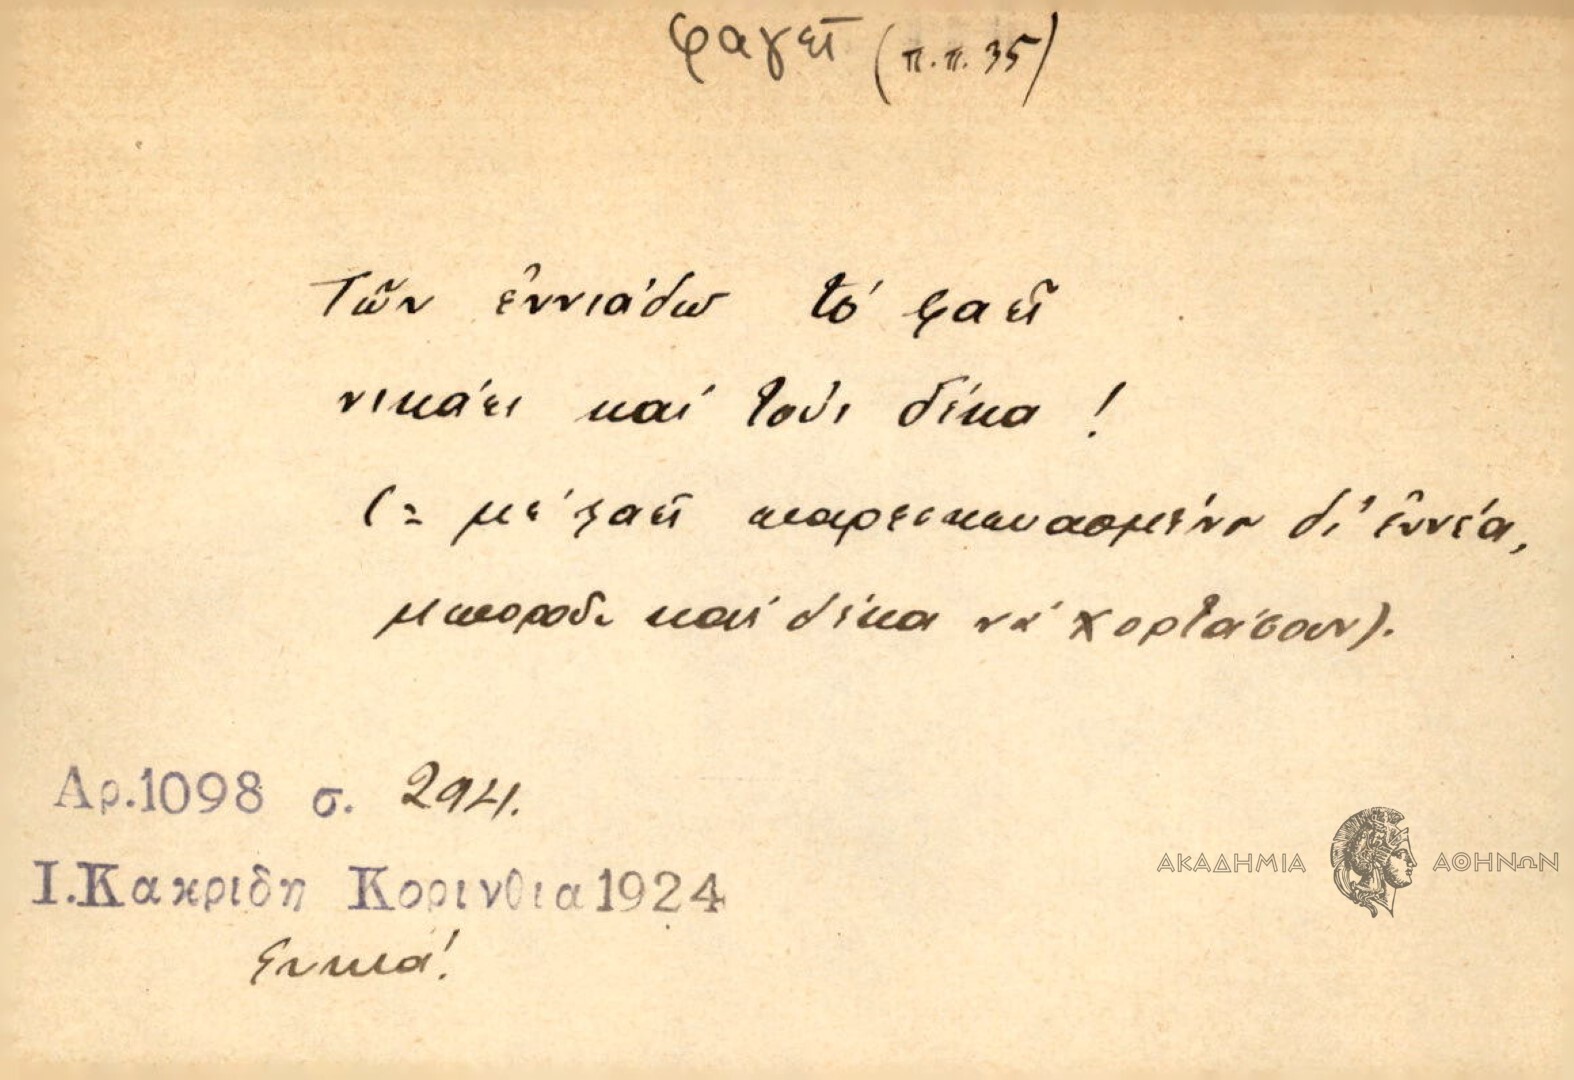 φαγεῖ (π.π. 35)
Τῶν ἐννιάδω τό φαεῖ
νικάει καί τούς δέκα!
(= μέ φαεῖ παρεσκευασμένο δι' ἐννέα,
μποροῦν καί δέκα νά χορτάσουν).
Αρ.1098 σ. 294.
ΑΚΑΔΗΜΙΑ ΑΘΗΝΩΝ
Ι.Κακριδη Κορινθια 1924